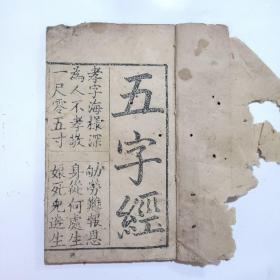 五字經
孝字海樣深 劬勞難報恩
為人不孝敬 身從何處生
一尺零五寸 娘死兒生